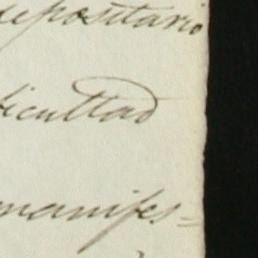 depositario
dicultad
manifes=